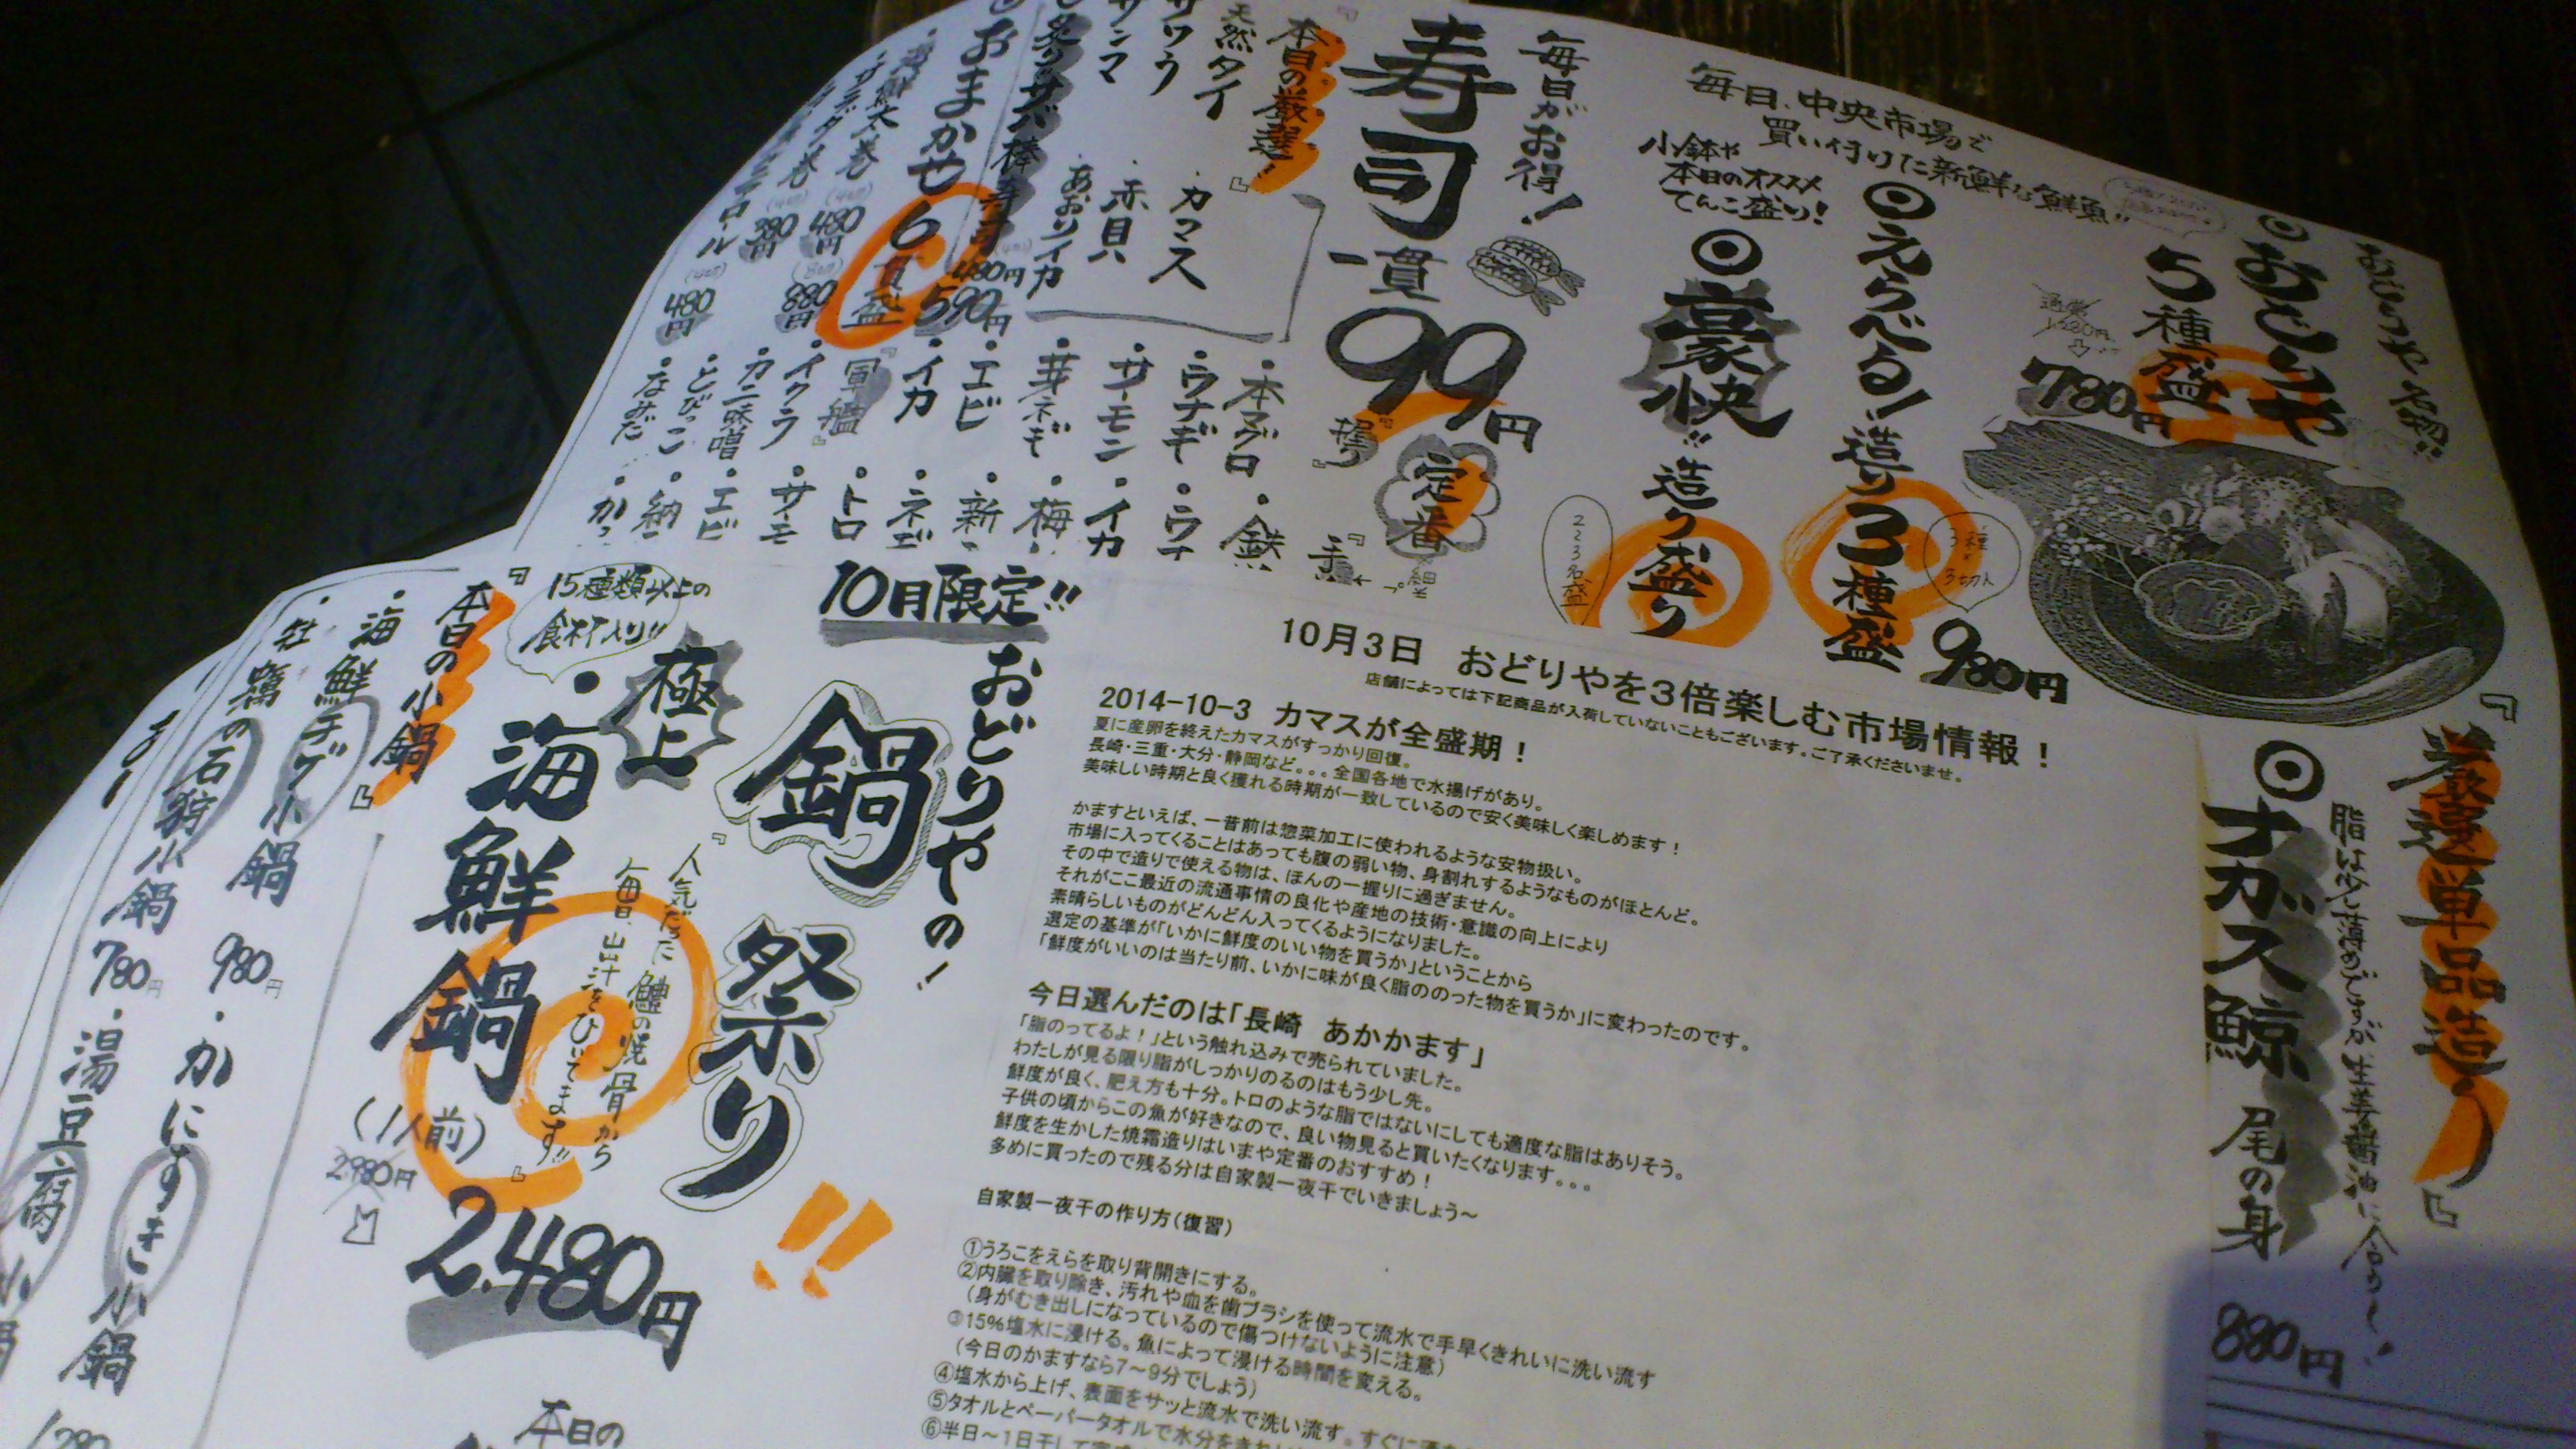 おどりや名物!!
◎おどりや
5種盛
通常
1,280円
780円
毎日、中央市場で
買い付けた新鮮な鮮魚!!
◎えらべる!造り3種盛
3種×3切れ
980円
小鉢や
本日のオススメ
てんこ盛り!
◎豪快!!造り盛り
2〜3名盛
毎日がお得!
寿司一貫99円
定番
『握り』
・本マグロ
・ウナギ
・サーモン
・芽ネギ
・エビ
・イカ
『軍艦』
・イクラ
・カニ味噌
・とびっこ
・なみだ
『本日の厳選』
天然タイ
サワラ
サンマ
・カマス
・赤貝
・あおりイカ
・炙りサバ棒寿司
480円
◎おまかせ6貫盛
590円
・海鮮太巻
480円
880円
・サラダ巻
380円
480円
『厳選単品造り』
◎ナガス鯨 尾の身
脂は少し薄めですが生姜醤油に合う〜!
880円
10月3日 おどりやを3倍楽しむ市場情報!
店舗によっては下記商品が入荷していないこともございます。ご了承くださいませ。
2014-10-3 カマスが全盛期!
夏に産卵を終えたカマスがすっかり回復。
長崎・三重・大分・静岡など。。。全国各地で水揚げがあり。
美味しい時期と良く獲れる時期が一致しているので安く美味しく楽しめます!
かますといえば、一昔前は惣菜加工に使われるような安物扱い。
市場に入ってくることはあっても腹の弱い物、身割れするようなものがほとんど。
その中で造りで使える物は、ほんの一握りに過ぎません。
それがここ最近の流通事情の良化や産地の技術・意識の向上により
素晴らしいものがどんどん入ってくるようになりました。
選定の基準が「いかに鮮度のいい物を買うか」ということから
「鮮度がいいのは当たり前、いかに味が良く脂ののった物を買うか」に変わったのです。
今日選んだのは「長崎 あかかます」
「脂のってるよ!」という触れ込みで売られていました。
わたしが見る限り脂がしっかりのるのはもう少し先。
鮮度が良く、肥え方も十分。トロのような脂ではないにしても適度な脂はありそう。
子供の頃からこの魚が好きなので、良い物見ると買いたくなります。。。
鮮度を生かした焼霜造りはいまや定番のおすすめ!
多めに買ったので残る分は自家製一夜干でいきましょう〜
自家製一夜干の作り方(復習)
①うろこをえらを取り背開きにする。
②内臓を取り除き、汚れや血を歯ブラシを使って流水で手早くきれいに洗い流す
(身がむき出しになっているので傷つけないように注意)
③15%塩水に浸ける。魚によって浸ける時間を変える。
(今日のかますなら7〜9分でしょう)
④塩水から上げ、表面をサッと流水で洗い流す。すぐに
⑤タオルとペーパータオルで水分を
⑥半日〜1日干して
10月限定!!
おどりやの!
鍋祭り!!
15種類以上の
食材入り!!
極上
・海鮮鍋
『人気だった鱧の焼骨から
毎日、出汁をひいてます!!』
(1人前)
2980円
2,480円
本日の
『本日の小鍋』
・海鮮チゲ小鍋
980円
・牡蠣の石狩小鍋
780円
・かにすき小鍋
1280
・湯豆腐小鍋